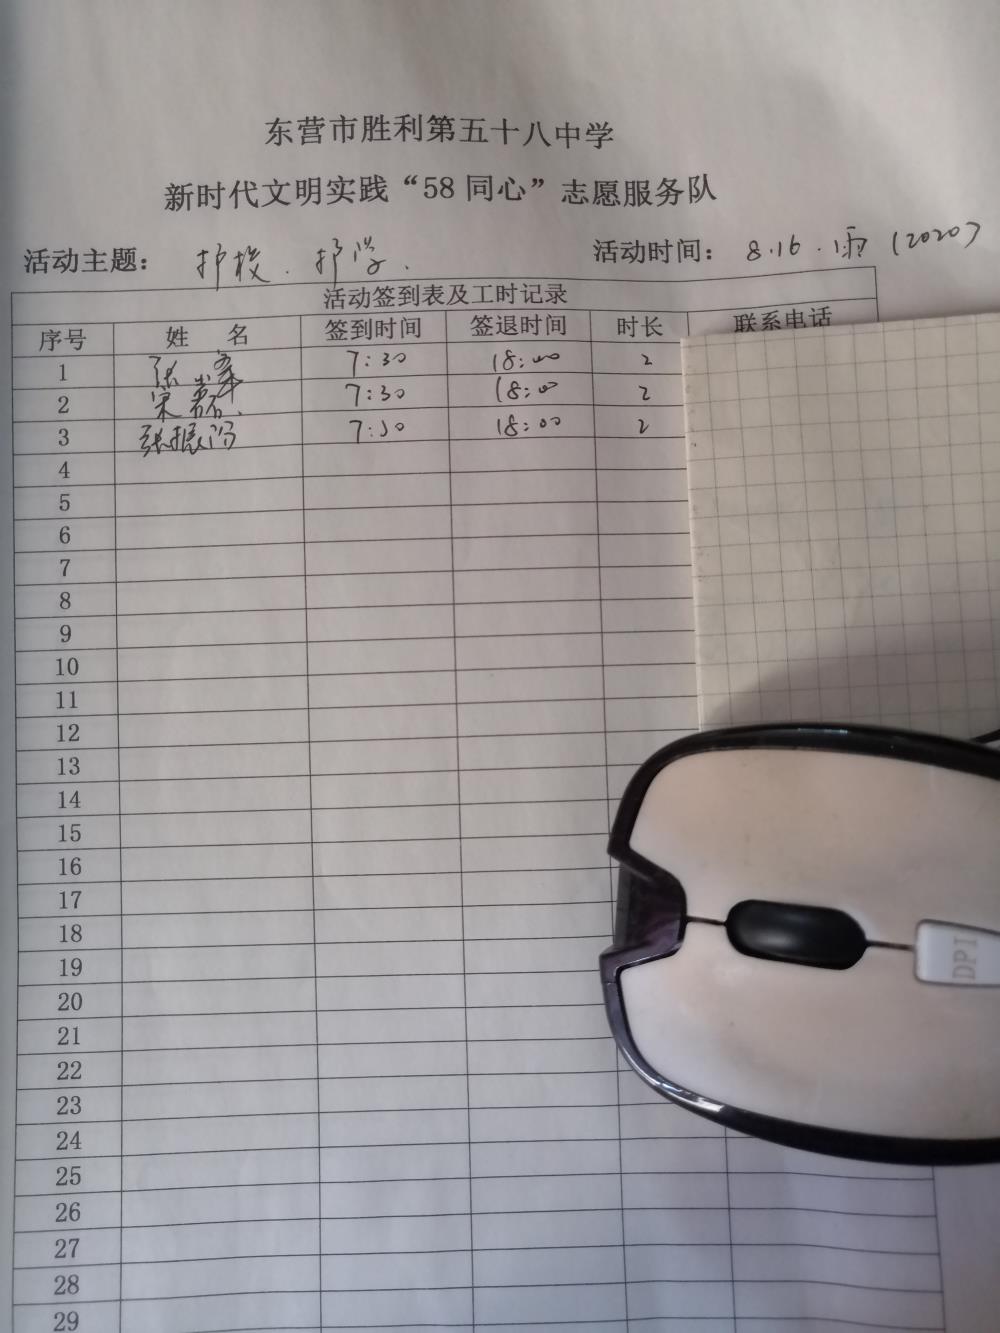 东营市胜利第五十八中学
新时代文明实践“58同心”志愿服务队
活动主题： 护校．护学． 活动时间： 8.16．雨（2020）
活动签到表及工时记录
序号 姓 名 签到时间 签退时间 时长 联系电话
1 张峯 7:30 18:00 2
2 宋磊 7:30 18:00 2
3 张振 7:30 18:00 2
4
5
6
7
8
9
10
11
12
13
14
15
16
17
18
19
20
21
22
23
24
25
26
27
28
29
DPI